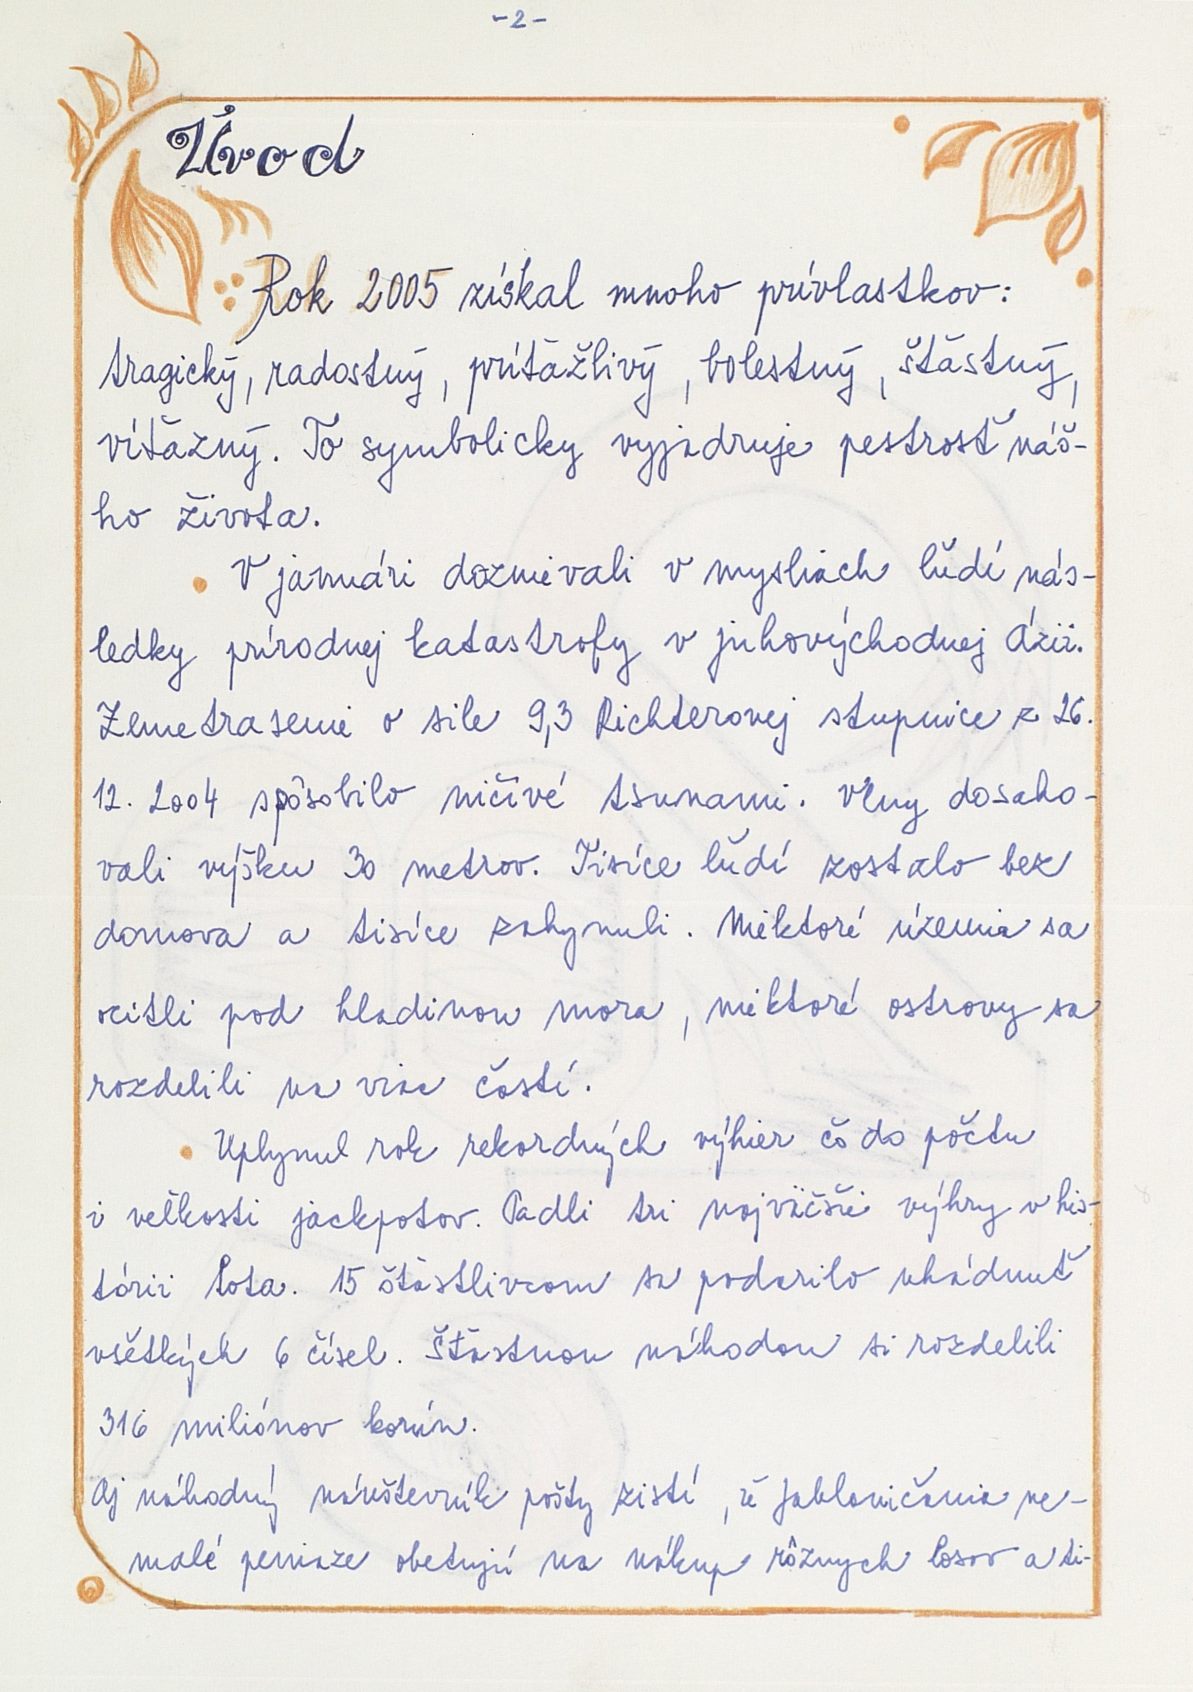 -2-
Úvod
Rok 2005 získal mnoho prívlastkov:
tragický, radostný, príťažlivý, bolestný, šťastný,
víťazný. To symbolicky vyjadruje pestrosť náš-
ho života.
V januári doznievali v mysliach ľudí nás-
ledky prírodnej katastrofy v juhovýchodnej Ázii.
Zemetrasenie o sile 9,3 Richterovej stupnice z 26.
12. 2004 spôsobilo ničivé tsunami. Vlny dosaho-
vali výšku 30 metrov. Tisíce ľudí zostalo bez
domova a tisíce zahynuli. Niektoré územia sa
ocitli pod hladinou mora, niektoré ostrovy sa
rozdelili na viac častí.
Uplynul rok rekordných výhier čo do počtu
i veľkosti jackpotov. Padli tri najväčšie výhry v his-
tórii Lota. 15 šťastlivcom sa podarilo uhádnuť
všetkých 6 čísel. Šťastnou náhodou si rozdelili
316 miliónov korún.
Aj náhodný návštevník pošty zistí, že Jabloničania ne-
malé peniaze obetujú na nákup rôznych losov a ti-